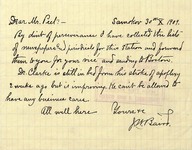 Dear Mr. Peet:- Samokov 30th X. 1909.
By dint of perseverance I have collected this lots
of newspaper products for this station and forward
them to you for your use and sending to Boston.
Dr. Clarke is still in bed from this stroke of apoplexy
2 weeks ago but is improving. He can't be allowed to
hear any business cares.
All well here. Yours etc
J. W. Baird.